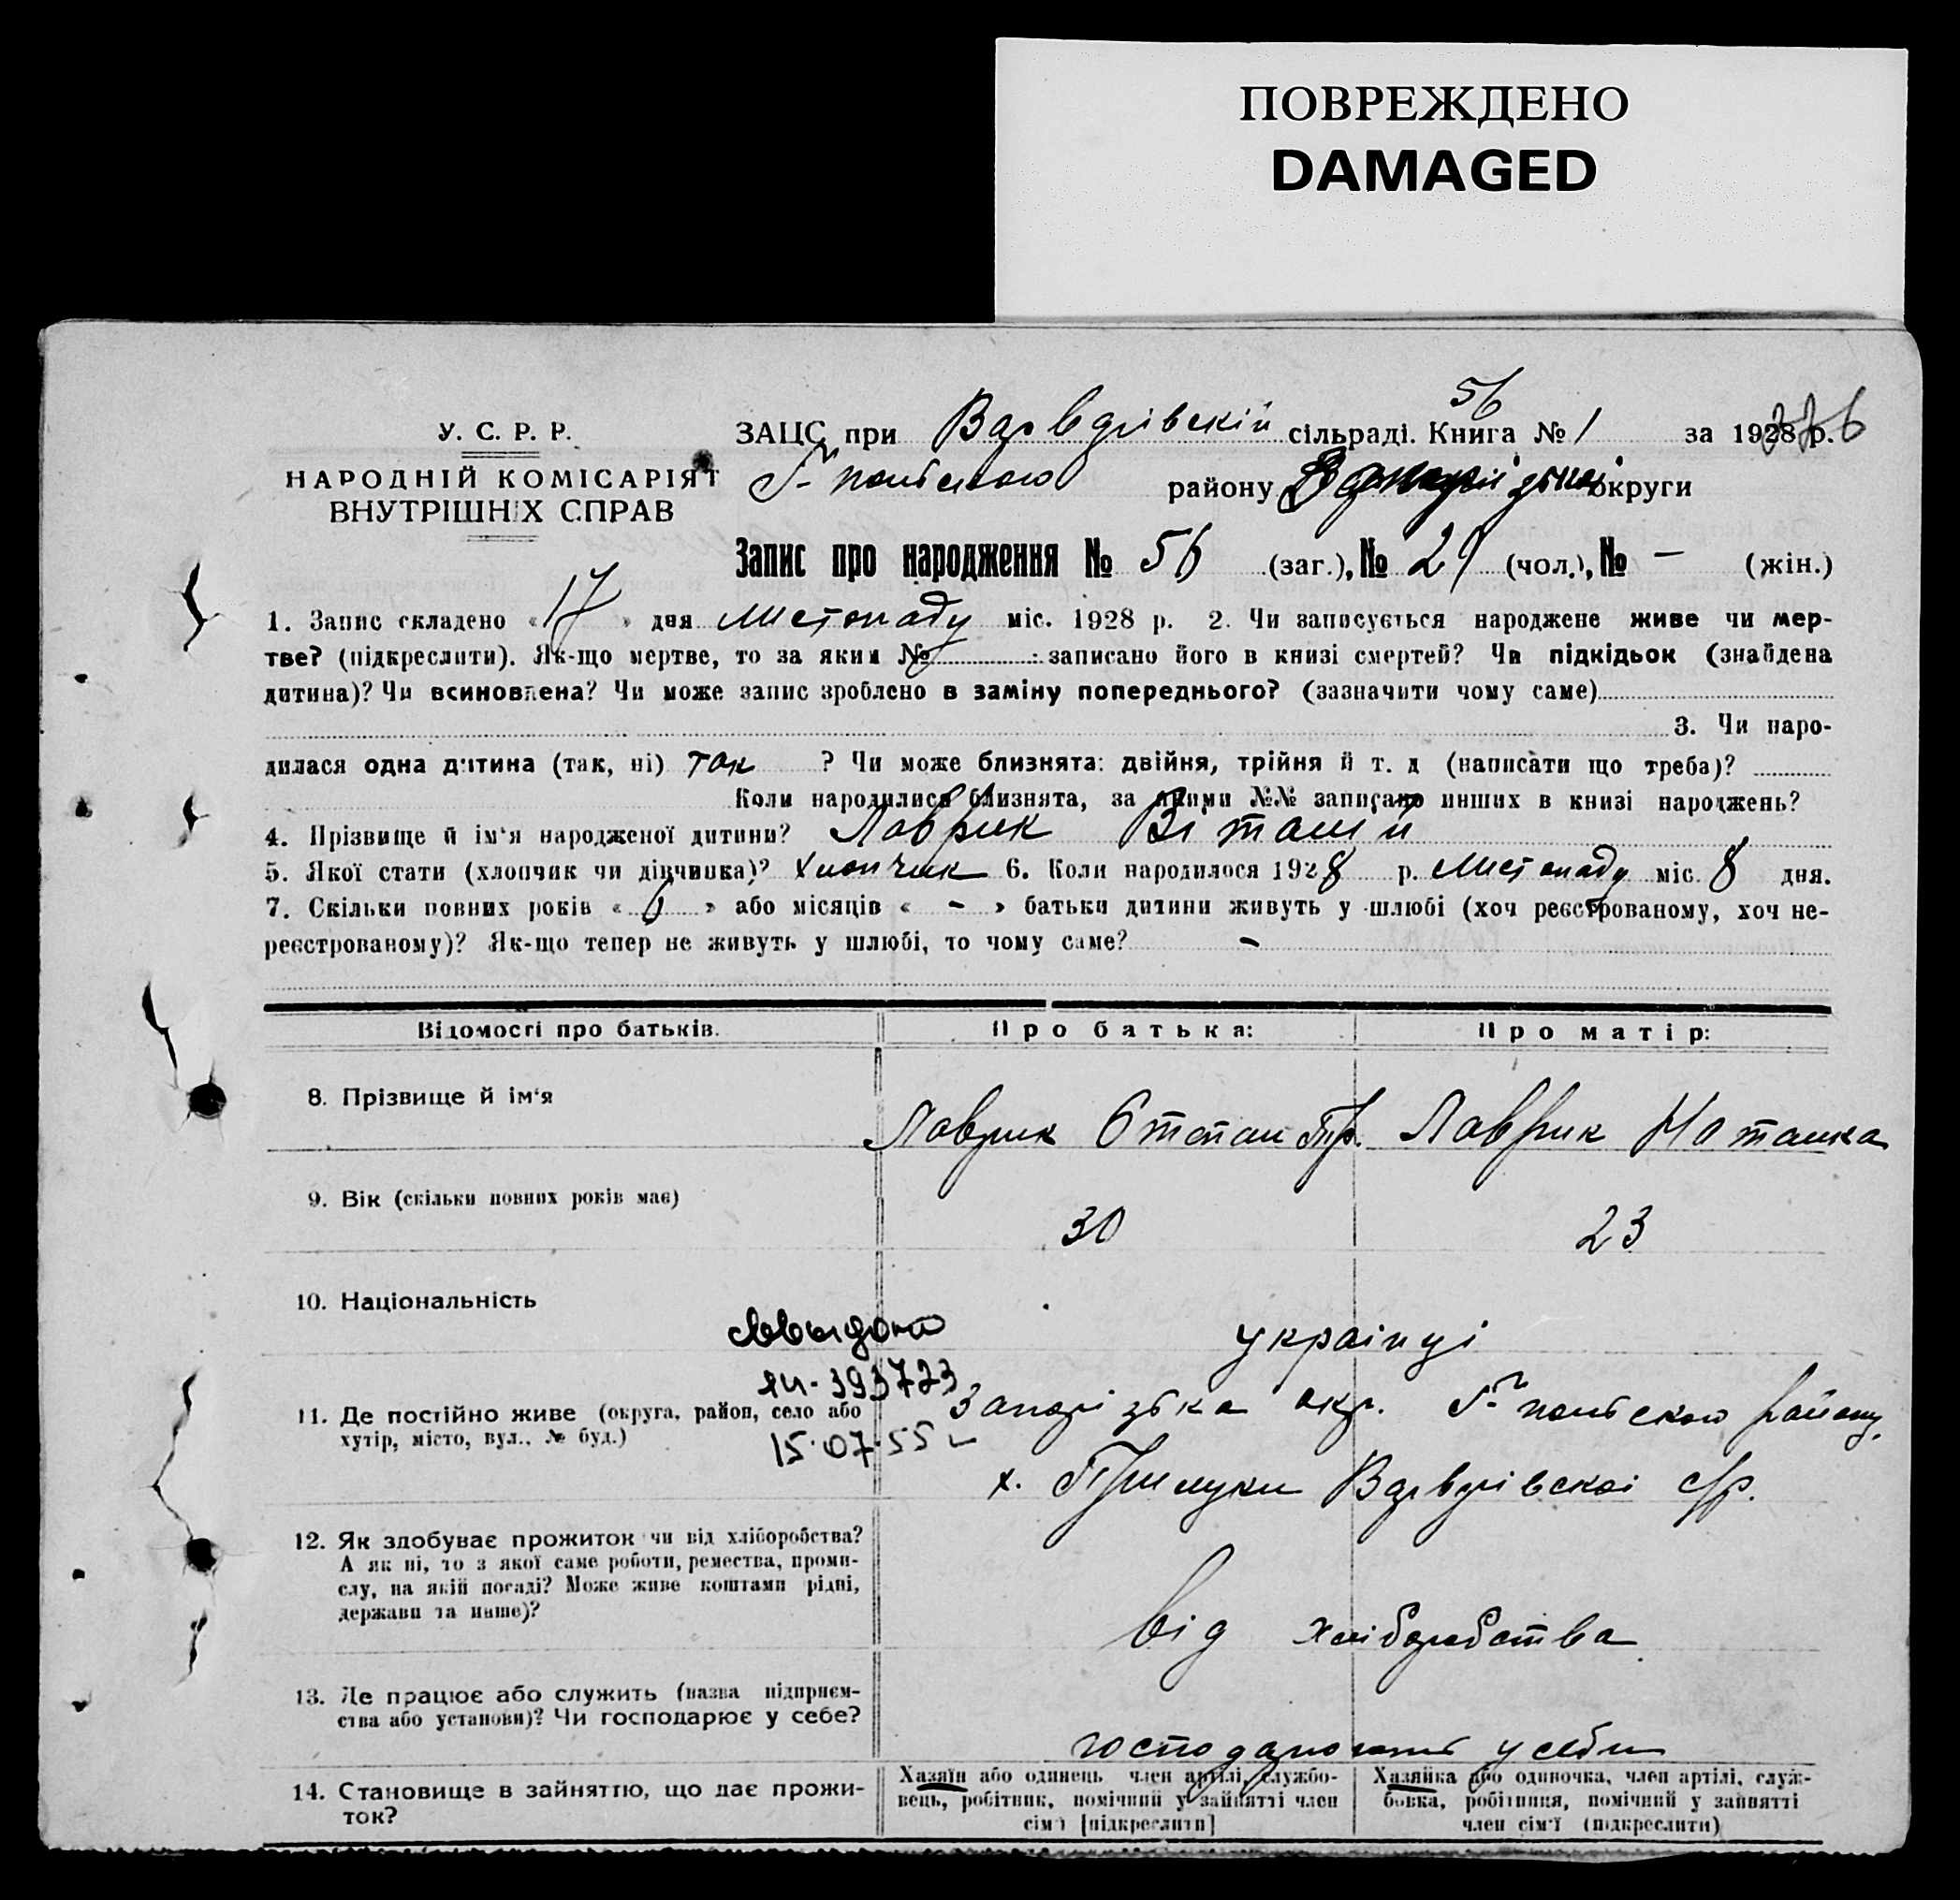 ПОВРЕЖДЕНО
DAMAGED
56
У. С. Р. Р.
НАРОДНІЙ КОМІСАРІЯТ
ВНУТРІШНІХ СПРАВ
ЗАЦС при Варварівскій сільраді. Книга № 1 за 1928 р.
Г-польского району округи
Запис про народження № 56 (заг.), № 29 (чол.), № — (жін.)
1. Запис складено «17» дня листопаду міс. 1928 р. 2. Чи записується народжене живе чи мер-
тве? (підкреслити). Як-що мертве, то за яким № записано його в книзі смертей? Чи підкідьок (знайдена
дитина)? Чи всиновлена? Чи може запис зроблено в заміну попереднього? (зазначити чому саме)
3. Чи наро-
дилася одна дитина (так, ні) так ? Чи може близнята: двійня, трійня й т. д (написати що треба)?
Коли народилися близнята, за якими №№ записано инших в книзі народжень?
4. Прізвище й ім'я народженої дитини? Лаврик Віталій
5. Якої стати (хлопчик чи дівчинка)? Хлопчик 6. Коли народилося 1928 р. Листопаду міс. 8 дня.
7. Скільки повних років «6» або місяців « - » батьки дитини живуть у шлюбі (хоч реєстрованому, хоч не-
реєстрованому)? Як-що тепер не живуть у шлюбі, то чому саме? -
Відомості про батьків. Про батька: Про матір:
8. Прізвище й ім'я Лаврик Степан Гр. Лаврик Наталка
9. Вік (скільки повних років має) 30 23
10. Національність українці
ян-393723
15.07.55
11. Де постійно живе (округа, район, село або
хутір, місто, вул., № буд.)
Запорізька окр. Г-польского району,
х. Прилуки Варварівскої с/р.
12. Як здобуває прожиток чи від хліборобства?
А як ні, то з якої саме роботи, ремества, проми-
слу, на якій посаді? Може живе коштами рідні,
держави та инше)?
від хліборобства
13. Де працює або служить (назва підприєм-
ства або установи)? Чи господарює у себе?
господарюють у себе
14. Становище в зайняттю, що дає прожи-
ток?
Хазяїн або одинець член артілі, службо-
вець, робітник, помічний у зайнятті член
сім'ї [підкреслити]
Хазяйка або одиночка, член артілі, служ-
бовка, робітниця, помічний у зайнятті
член сім'ї (підкреслити)